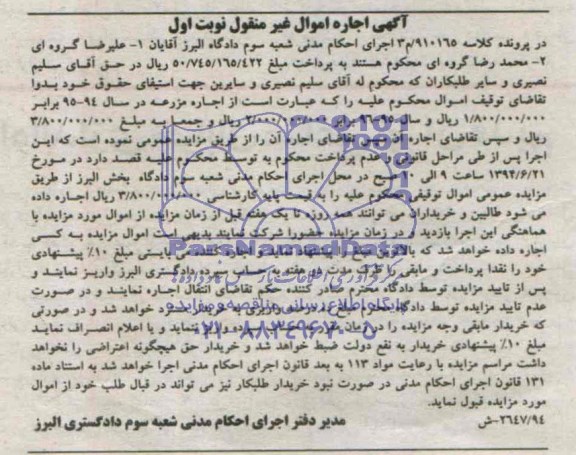 آگهی اجاره اموال غیر منقول نوبت اول
در پرونده کلاسه ۹۱۰۱۶۵/م۳ اجرای احکام مدنی شعبه سوم دادگاه البرز آقایان ۱- علیرضا گروه ای
۲- محمد رضا گروه ای محکوم هستند به پرداخت مبلغ ۵۰/۷۴۵/۱۶۵/۴۲۲ ریال در حق آقای سلیم
نصیری و سایر طلبکاران که محکوم له آقای سلیم نصیری و سایرین جهت استیفای حقوق خود بدوا
تقاضای توقیف اموال محکوم علیه را که عبارت است از اجاره مزرعه در سال ۹۴-۹۵ برابر
۱/۸۰۰/۰۰۰/۰۰۰ ریال و سال ۹۵-۹۶ برابر ۲/۰۰۰/۰۰۰/۰۰۰ ریال و جمعا به مبلغ ۳/۸۰۰/۰۰۰/۰۰۰
ریال و سپس تقاضای اجاره آن را از طریق مزایده عمومی نموده است که این
اجرا پس از طی مراحل قانونی و عدم پرداخت محکوم به توسط محکوم علیه قصد دارد در مورخ
۱۳۹۴/۶/۲۱ ساعت ۹ الی ۱۰ صبح در محل اجرای احکام مدنی شعبه سوم دادگاه بخش البرز از طریق
مزایده عمومی اموال توقیفی محکوم علیه را به قیمت پایه کارشناسی ۳/۸۰۰/۰۰۰/۰۰۰ ریال اجاره داده
می شود طالبین و خریداران می توانند همه روزه تا یک هفته قبل از زمان مزایده از اموال مورد مزایده با
هماهنگی این اجرا بازدید و در زمان مزایده حضورا شرکت نمایند بدیهی است اموال مزایده به کسی
اجاره داده خواهد شد که بالاترین مبلغ را پیشنهاد نماید و اجاره کننده می بایستی مبلغ ۱۰٪ پیشنهادی
خود را نقدا پرداخت و مابقی را ظرف مدت هفته به حساب سپرده دادگستری البرز واریز نمایند و
پس از تایید مزایده توسط دادگاه محترم صادر کننده حکم تقاضای انتقال اجاره نمایند و در صورت
عدم تایید مزایده توسط دادگاه محترم مبلغ ۱۰ درصد واریزی به خریدار مسترد خواهد شد و در صورتی
که خریدار مابقی وجه مزایده را در زمان مقرر به حساب سپرده واریز ننماید و یا اعلام انصراف نماید
مبلغ ۱۰٪ پیشنهادی خریدار به نفع دولت ضبط خواهد شد و خریدار حق هیچگونه اعتراضی را نخواهد
داشت مراسم مزایده با رعایت مواد ۱۱۳ به بعد قانون اجرای احکام مدنی اجرا خواهد شد به استناد ماده
۱۳۱ قانون اجرای احکام مدنی در صورت نبود خریدار طلبکار نیز می تواند در قبال طلب خود از اموال
مورد مزایده قبول نماید.
۲۶۴۷/۹۴-ش مدیر دفتر اجرای احکام مدنی شعبه سوم دادگستری البرز
ParsNamadData
پایگاه اطلاع رسانی مناقصه و مزایده
۰۲۱-۸۸۳۴۹۶۷۰-۵